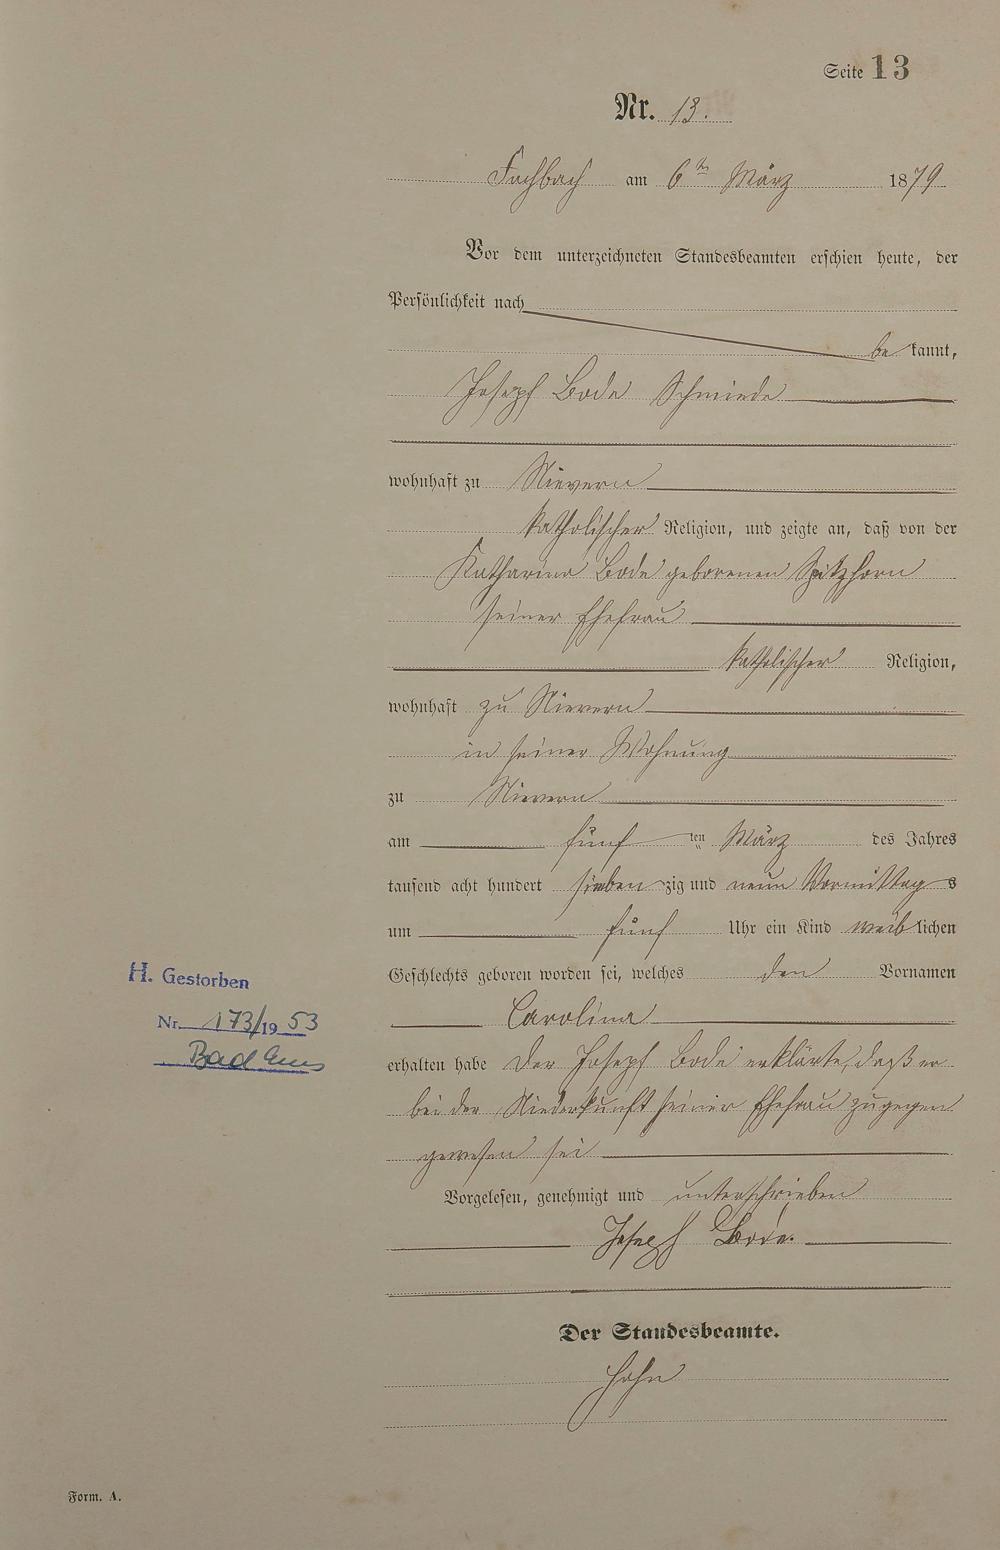 Seite 13
Nr. 13.
Fachbach am 6ten März 1879
Vor dem unterzeichneten Standesbeamten erschien heute, der
Persönlichkeit nach
be kannt,
Joseph Bode Schmiede
wohnhaft zu Nievern
katholischer Religion, und zeigte an, daß von der
Katharina Bode geborenen Spitzhorn
seiner Ehefrau
katholischer Religion,
wohnhaft zu Nievern
in seiner Wohnung
zu Nievern
am fünf ten März des Jahres
tausend acht hundert sieben zig und neun Vormittag s
um fünf Uhr ein Kind weib lichen
Geschlechts geboren worden sei, welches den Vornamen
Carolina
H. Gestorben
Nr. 173/19 53
Bad Ems
erhalten habe Der Joseph Bode erklärte, daß er
bei der Niederkunft seiner Ehefrau zugegen
gewesen sei
Vorgelesen, genehmigt und unterschrieben
Joseph Bode.
Der Standesbeamte.
Hahn
Form. A.